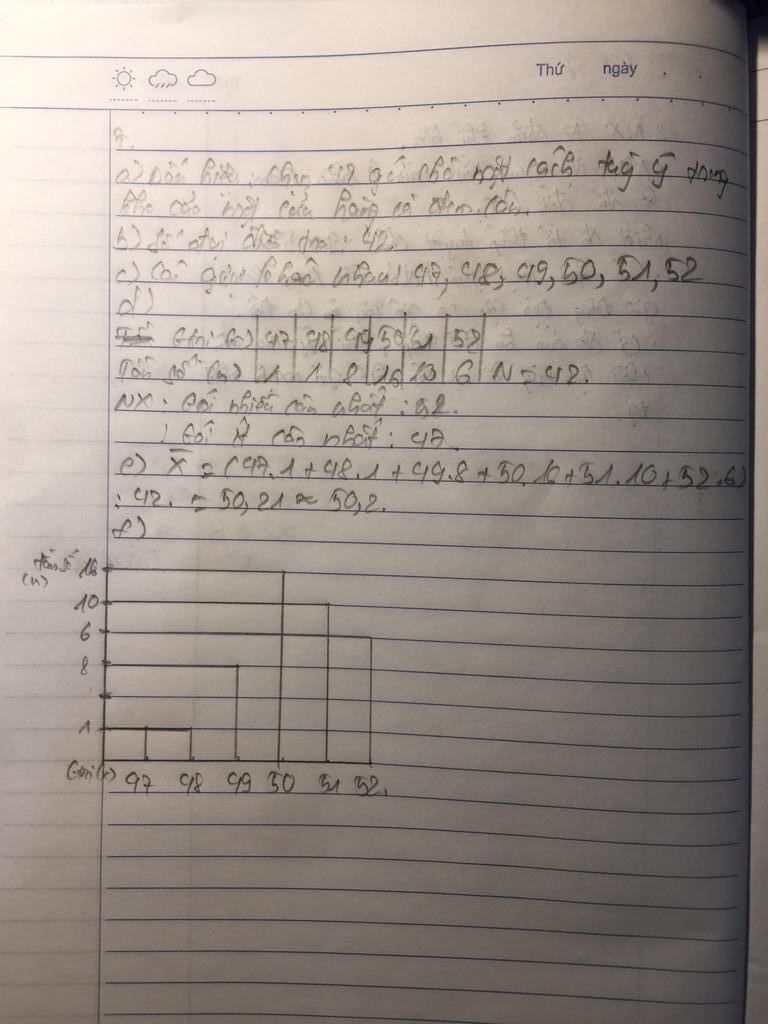 Thứ ngày
7.
a) Dấu hiệu : chọn 42 gói chè một cách tuỳ ý trong
kho của một cửa hàng và đem cân.
b) Số đơn vị điều tra : 42.
c) Các giá khác nhau : 47, 48, 49, 50, 51, 52
d)
Gói (x) 47 48 49 50 51 52
Tần số (n) 1 1 8 16 10 6 N = 42.
NX : Gói nhiều cân nhất : 52.
Gói ít cân nhất : 47
e) X̄ = (47.1 + 48.1 + 49.8 + 50.16 + 51.10 + 52.6)
: 42. = 50,21 ≈ 50,2.
f)
tần số 16
(n)
10
6
8
1
Gói (x) 47 48 49 50 51 52.